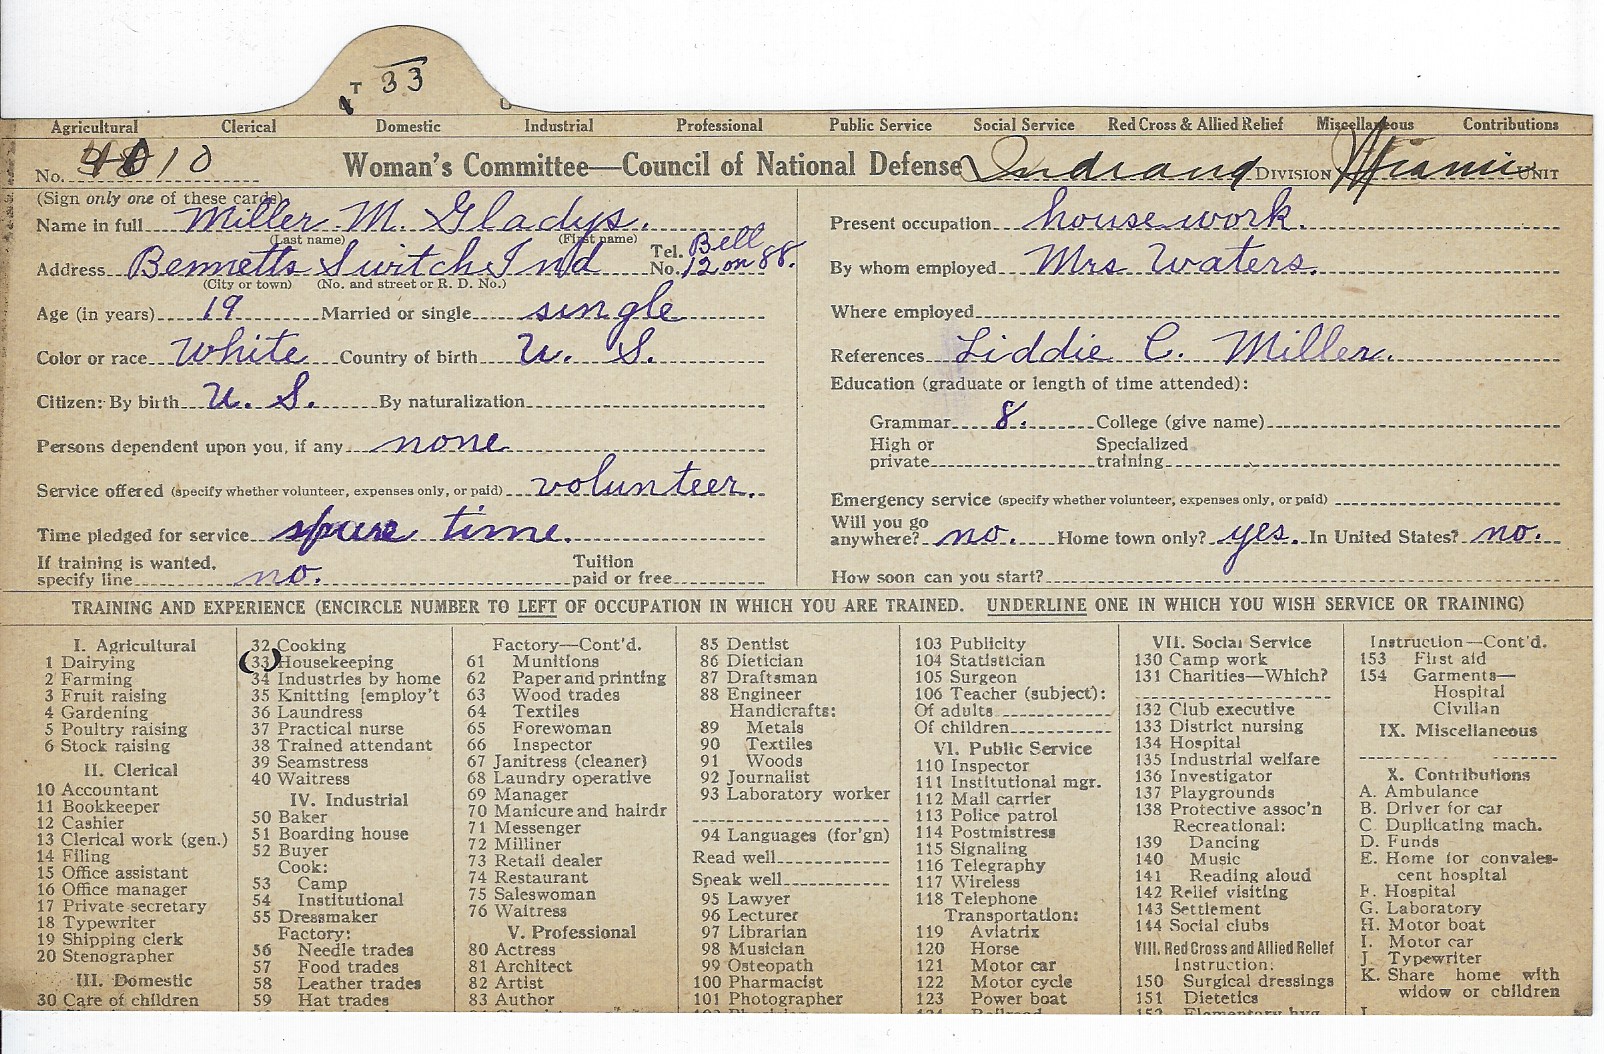 T 33
Agricultural Clerical Domestic Industrial Professional Public Service Social Service Red Cross & Allied Relief Miscellaneous Contributions
No. 10 Woman's Committee—Council of National Defense Indiana DIVISION Miami UNIT
(Sign only one of these cards)
Name in full Miller M. Gladys.
(Last name) (First name)
Address Bennetts Switch Ind Tel. No. Bell 12 on 88.
(City or town) (No. and street or R. D. No.)
Age (in years) 19 Married or single single
Color or race White Country of birth U. S.
Citizen: By birth U. S. By naturalization
Persons dependent upon you, if any none
Service offered (specify whether volunteer, expenses only, or paid) volunteer.
Time pledged for service spare time.
If training is wanted, specify line no. Tuition paid or free
Present occupation housework.
By whom employed Mrs Waters.
Where employed
References Liddie C. Miller.
Education (graduate or length of time attended):
Grammar 8. College (give name)
High or private Specialized training
Emergency service (specify whether volunteer, expenses only, or paid)
Will you go anywhere? no. Home town only? yes. In United States? no.
How soon can you start?
TRAINING AND EXPERIENCE (ENCIRCLE NUMBER TO LEFT OF OCCUPATION IN WHICH YOU ARE TRAINED. UNDERLINE ONE IN WHICH YOU WISH SERVICE OR TRAINING)
I. Agricultural
1 Dairying
2 Farming
3 Fruit raising
4 Gardening
5 Poultry raising
6 Stock raising
II. Clerical
10 Accountant
11 Bookkeeper
12 Cashier
13 Clerical work (gen.)
14 Filing
15 Office assistant
16 Office manager
17 Private secretary
18 Typewriter
19 Shipping clerk
20 Stenographer
III. Domestic
30 Care of children
32 Cooking
33 Housekeeping
34 Industries by home
35 Knitting [employ't
36 Laundress
37 Practical nurse
38 Trained attendant
39 Seamstress
40 Waitress
IV. Industrial
50 Baker
51 Boarding house
52 Buyer
Cook:
53 Camp
54 Institutional
55 Dressmaker
Factory:
56 Needle trades
57 Food trades
58 Leather trades
59 Hat trades
Factory—Cont'd.
61 Munitions
62 Paper and printing
63 Wood trades
64 Textiles
65 Forewoman
66 Inspector
67 Janitress (cleaner)
68 Laundry operative
69 Manager
70 Manicure and hairdr
71 Messenger
72 Milliner
73 Retail dealer
74 Restaurant
75 Saleswoman
76 Waitress
V. Professional
80 Actress
81 Architect
82 Artist
83 Author
85 Dentist
86 Dietician
87 Draftsman
88 Engineer
Handicrafts:
89 Metals
90 Textiles
91 Woods
92 Journalist
93 Laboratory worker
94 Languages (for'gn)
Read well
Speak well
95 Lawyer
96 Lecturer
97 Librarian
98 Musician
99 Osteopath
100 Pharmacist
101 Photographer
103 Publicity
104 Statistician
105 Surgeon
106 Teacher (subject):
Of adults
Of children
VI. Public Service
110 Inspector
111 Institutional mgr.
112 Mail carrier
113 Police patrol
114 Postmistress
115 Signaling
116 Telegraphy
117 Wireless
118 Telephone
Transportation:
119 Aviatrix
120 Horse
121 Motor car
122 Motor cycle
123 Power boat
VII. Social Service
130 Camp work
131 Charities—Which?
132 Club executive
133 District nursing
134 Hospital
135 Industrial welfare
136 Investigator
137 Playgrounds
138 Protective assoc'n
Recreational:
139 Dancing
140 Music
141 Reading aloud
142 Relief visiting
143 Settlement
144 Social clubs
VIII. Red Cross and Allied Relief
Instruction:
150 Surgical dressings
151 Dietetics
152 Elementary hyg.
Instruction—Cont'd.
153 First aid
154 Garments—
Hospital
Civilian
IX. Miscellaneous
X. Contributions
A. Ambulance
B. Driver for car
C. Duplicating mach.
D. Funds
E. Home for convales-
cent hospital
F. Hospital
G. Laboratory
H. Motor boat
I. Motor car
J. Typewriter
K. Share home with
widow or children